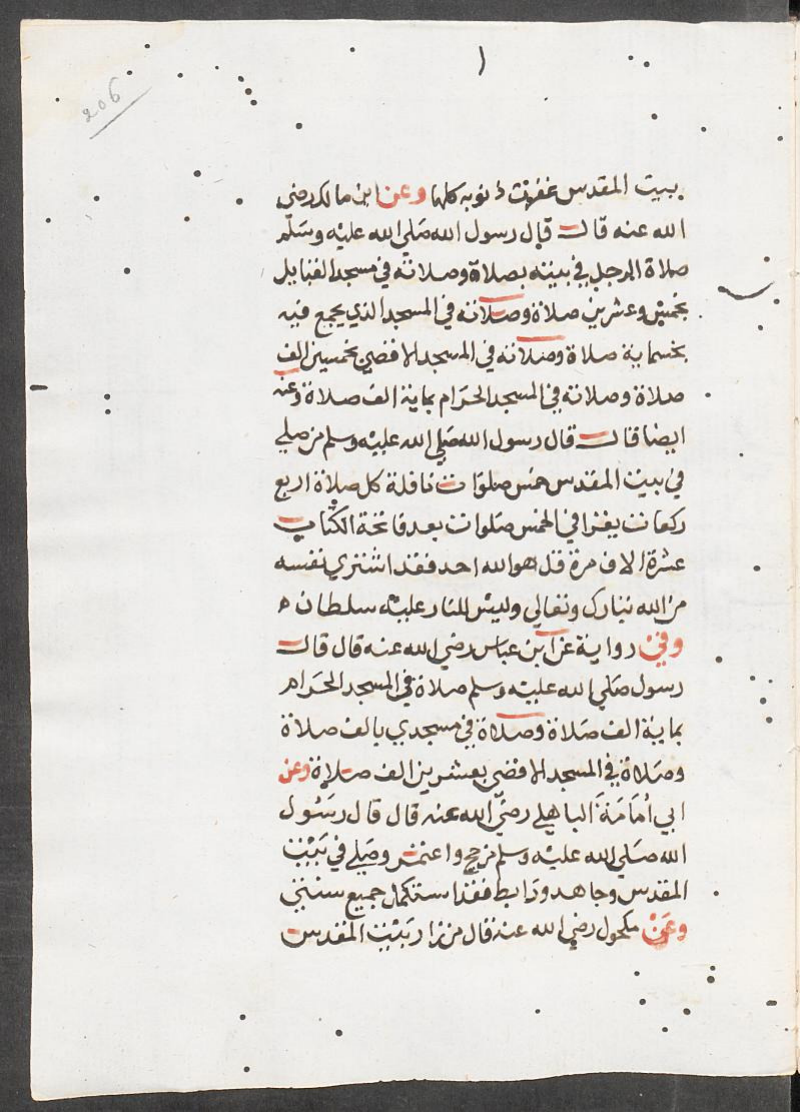 206
ببيت المقدس غفرت ذنوبه كلها وعن ابن مالك رضى
الله عنه قال قال رسول الله صلي الله عليه وسلم
صلاة الرجل في بيته بصلاة وصلاته في مسجد القبايل
بخمس وعشرين صلاة وصلاته في المسجد الذي يجمع فيه
بخسماية صلاة وصلاته في المسجد الاقصي بخمسين الف
صلاة وصلاته في المسجد الحرام بماية الف صلاة وعنه
ايضا قال قال رسول الله صلي الله عليه وسلم من صلي
في بيت المقدس خمس صلوات نافلة كل صلاة اربع
ركعات يقرا في الخمس صلوات بعد فاتحة الكتاب
عشرة الاف مرة قل هو الله احد فقد اشتري نفسه
من الله تبارك وتعالي وليس للنار عليه سلطان ه
وفي رواية عن ابن عباس رضي الله عنه قال قال
رسول صلي الله عليه وسلم صلاة في المسجد الحرام
بماية الف صلاة وصلاة في مسجدي بالف صلاة
وصلاة في المسجد الاقصي بعشرين الف صلاة وعن
ابي أمَامَة الباهلي رضي الله عنه قال قال رسول
الله صلي الله عليه وسلم من حج واعتمر وصلي في بَيْت
المقدس وجاهد ورابط فقد استكمل جميع سنتي
وعَنْ مكحول رضي الله عنه قال من زار بَيْت المقدس